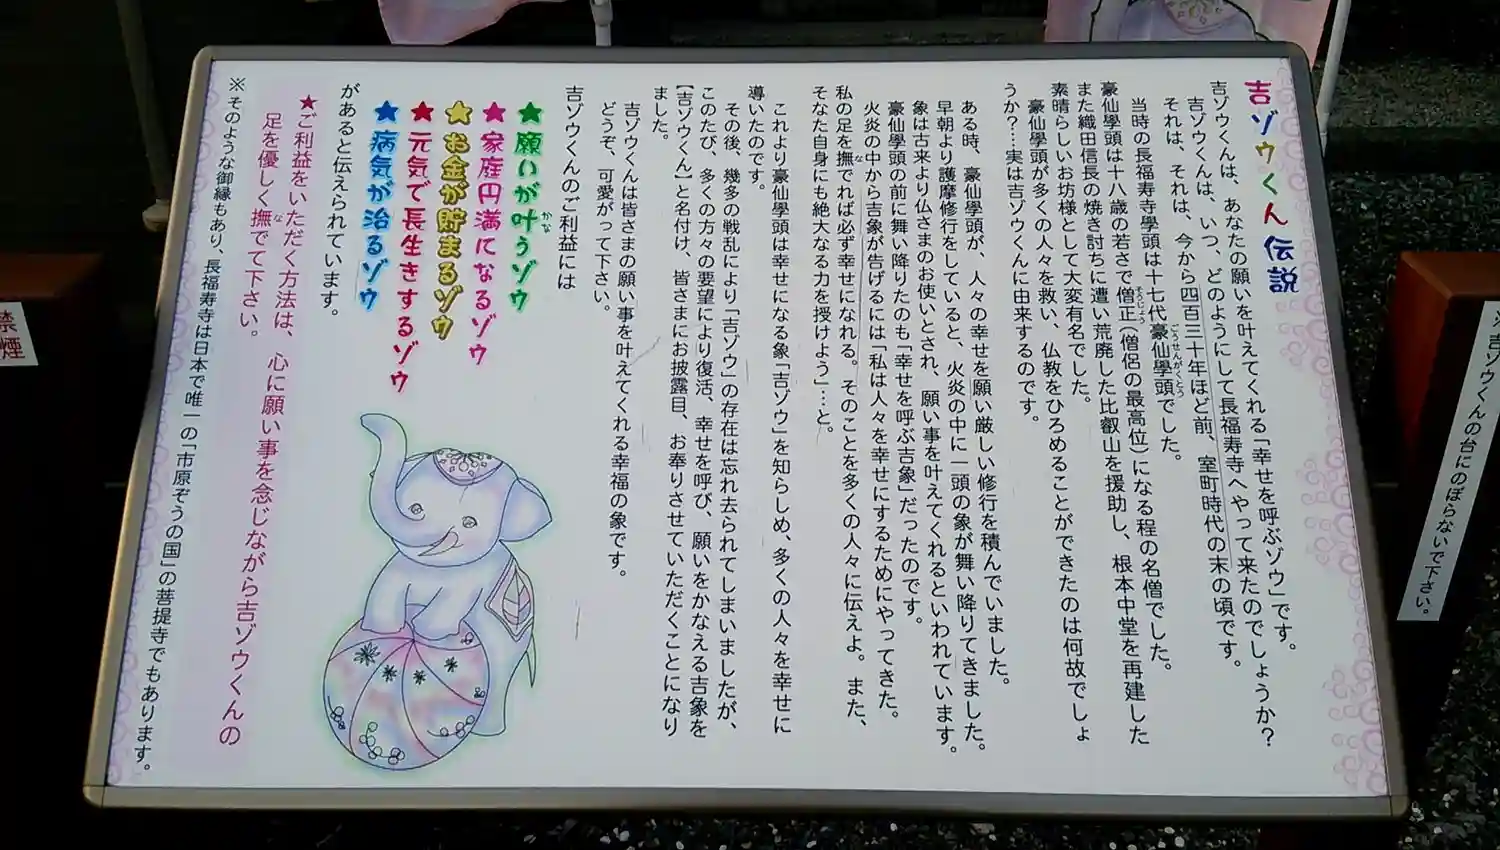 吉ゾウくん伝説
吉ゾウくんは、あなたの願いを叶えてくれる「幸せを呼ぶゾウ」です。
吉ゾウくんは、いつ、どのようにして長福寿寺へやって来たのでしょうか？
それは、それは、今から四百三十年ほど前、室町時代の末の頃です。
当時の長福寿寺學頭は十七代豪仙學頭でした。
ごうせんがくとう
豪仙學頭は十八歳の若さで僧正（僧侶の最高位）になる程の名僧でした。
そうじょう
また織田信長の焼き討ちに遭い荒廃した比叡山を援助し、根本中堂を再建した
素晴らしいお坊様として大変有名でした。
豪仙學頭が多くの人々を救い、仏教をひろめることができたのは何故でしょ
うか？…実は吉ゾウくんに由来するのです。
ある時、豪仙學頭が、人々の幸せを願い厳しい修行を積んでいました。
早朝より護摩修行をしていると、火炎の中に一頭の象が舞い降りてきました。
象は古来より仏さまのお使いとされ、願い事を叶えてくれるといわれています。
豪仙學頭の前に舞い降りたのも「幸せを呼ぶ吉象」だったのです。
火炎の中から吉象が告げるには「私は人々を幸せにするためにやってきた。
私の足を撫でれば必ず幸せになれる。そのことを多くの人々に伝えよ。また、
な
そなた自身にも絶大なる力を授けよう」…と。
これより豪仙學頭は幸せになる象「吉ゾウ」を知らしめ、多くの人々を幸せに
導いたのです。
その後、幾多の戦乱により「吉ゾウ」の存在は忘れ去られてしまいましたが、
このたび、多くの方々の要望により復活、幸せを呼び、願いをかなえる吉象を
【吉ゾウくん】と名付け、皆さまにお披露目、お奉りさせていただくことになり
ました。
吉ゾウくんは皆さまの願い事を叶えてくれる幸福の象です。
どうぞ、可愛がって下さい。
吉ゾウくんのご利益には
★願いが叶うゾウ
かな
★家庭円満になるゾウ
★お金が貯まるゾウ
★元気で長生きするゾウ
★病気が治るゾウ
があると伝えられています。
★ご利益をいただく方法は、心に願い事を念じながら吉ゾウくんの
足を優しく撫でて下さい。
な
※そのような御縁もあり、長福寿寺は日本で唯一の「市原ぞうの国」の菩提寺でもあります。
吉ゾウくんの台にのぼらないで下さい。
禁煙